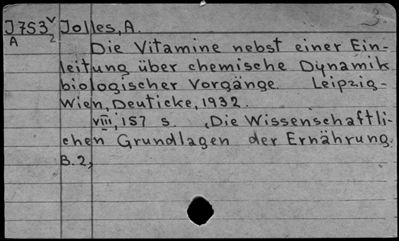 3.
J753 V Jolles, A.
A 2
Die Vitamine nebst einer Ein-
leitung über chemische Dynamik
biologischer Vorgänge. Leipzig-
Wien, Deuticke, 1932.
VIII, 157 s. (Die Wissenschaftli-
chen Grundlagen der Ernährung.
B. 2)